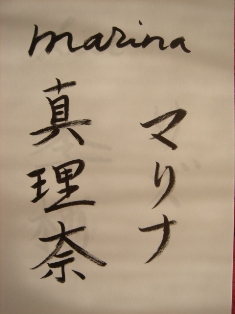 marina
マリナ
真理奈